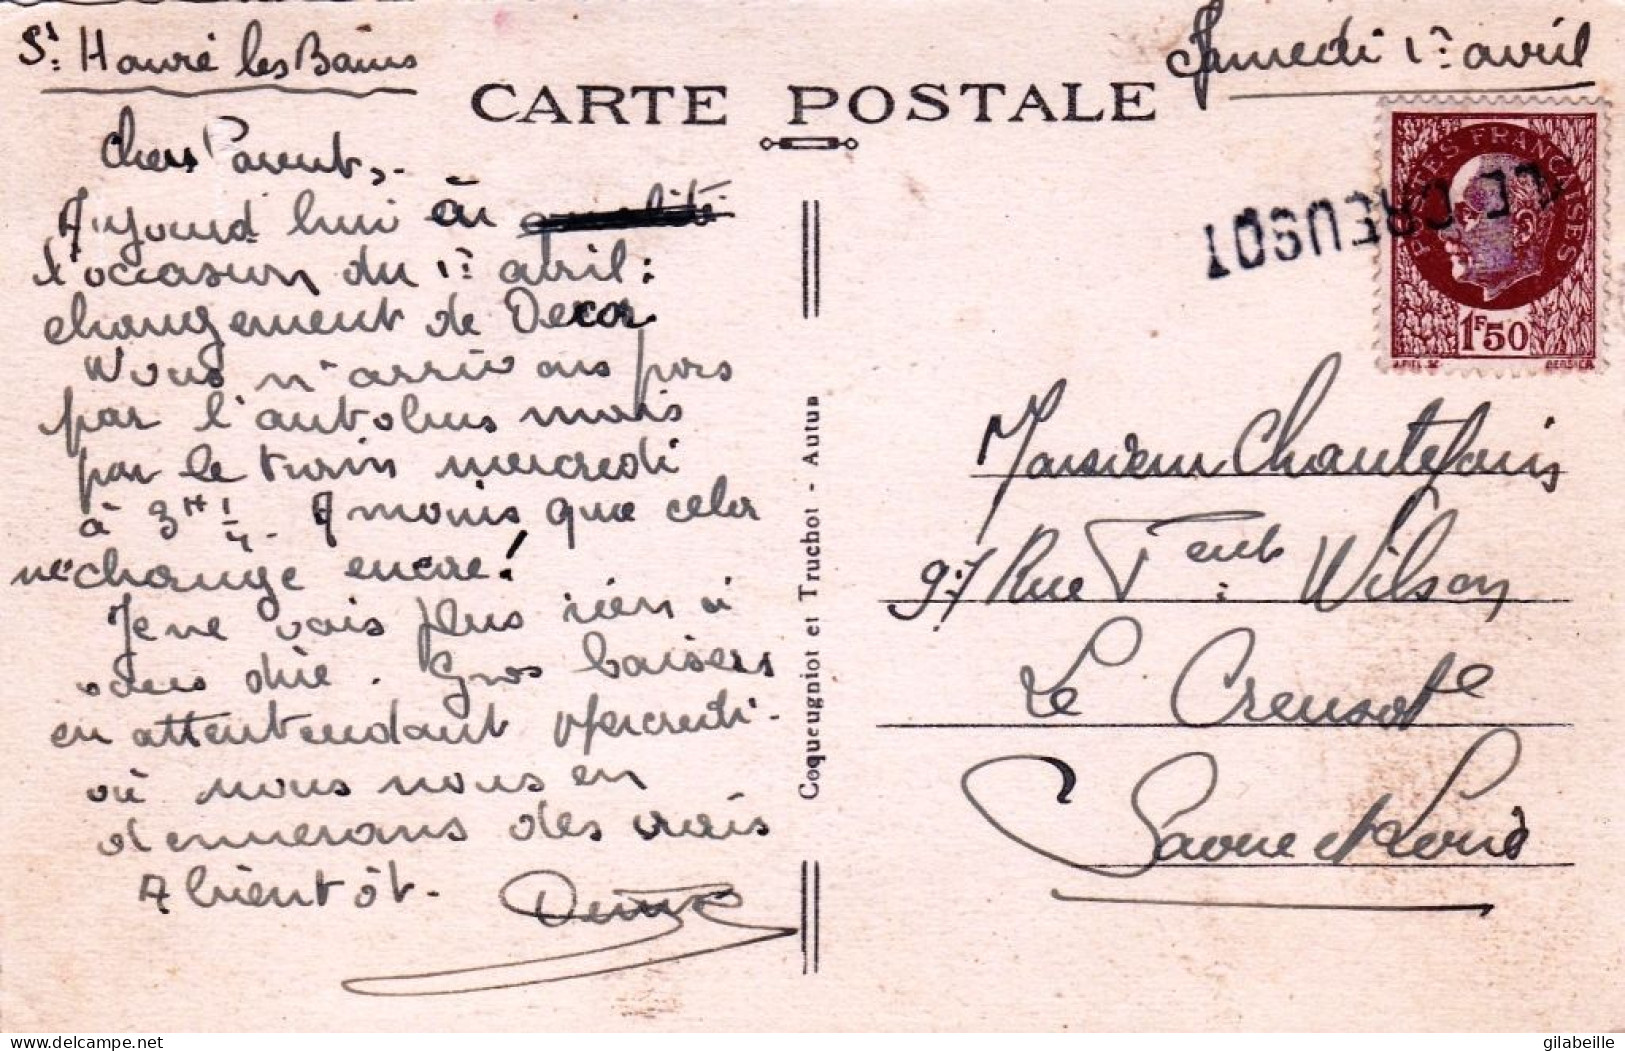 St Honoré les Bains
Samedi 1er avril
CARTE POSTALE
Chers Parents,
Aujourd'hui à
l'occasion du 1er avril :
changement de Decor
Nous n'arrivons pas
par l'autobus mais
par le train mercredi
à 3H 1/4. A moins que cela
ne change encore !
Je ne vois plus rien à
vous dire. Gros baisers
en attentendant Mercredi.
où nous nous en
donnerons des vrais
A bientôt.
Denise
Coqueugniot et Truchot - Autun
POSTES FRANÇAISES
1F50
LE CREUSOT
Monsieur Chantefain
97 Rue Wilson
Le Creusot
Saone et Loire
gilabeille